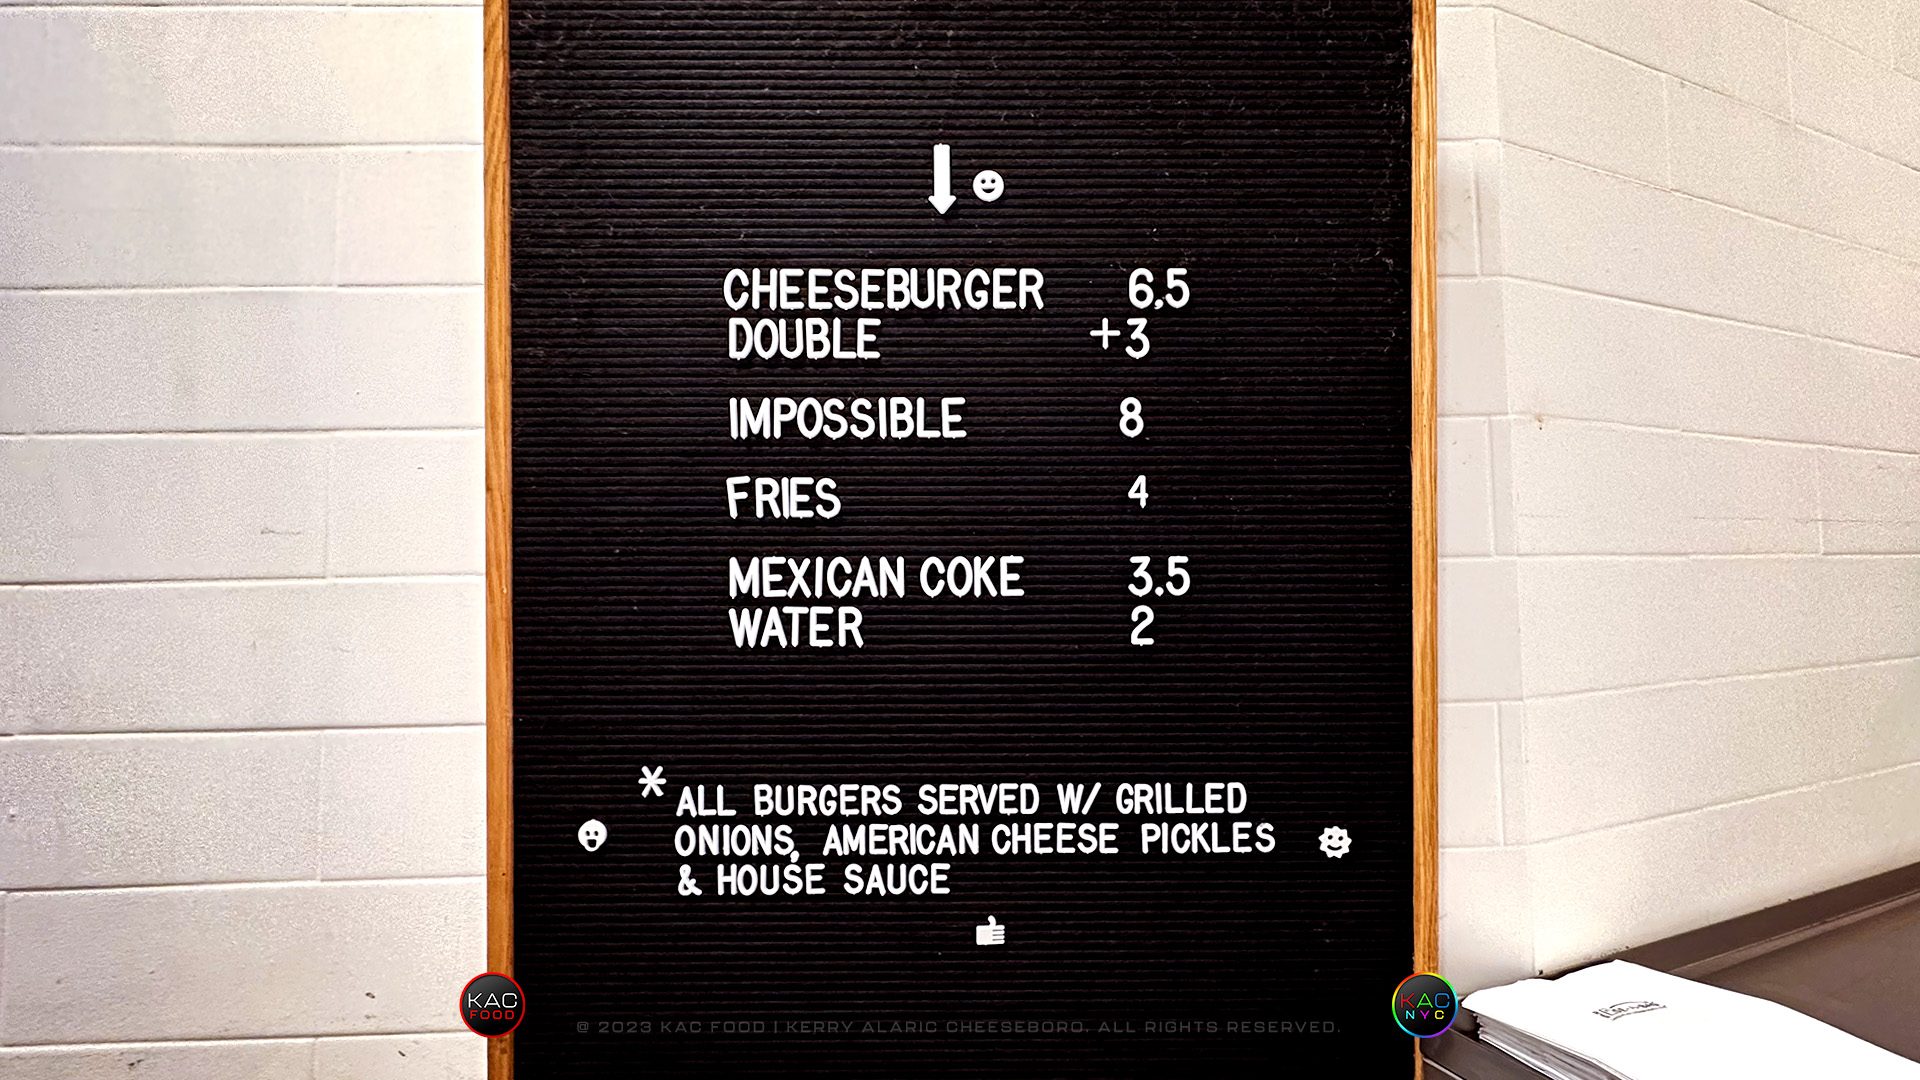 CHEESEBURGER 6,5
DOUBLE +3
IMPOSSIBLE 8
FRIES 4
MEXICAN COKE 3.5
WATER 2
* ALL BURGERS SERVED W/ GRILLED
ONIONS, AMERICAN CHEESE PICKLES
& HOUSE SAUCE
KAC
FOOD
@ 2023 KAC FOOD | KERRY ALARIC CHEESEBORO. ALL RIGHTS RESERVED.
KAC
NYC